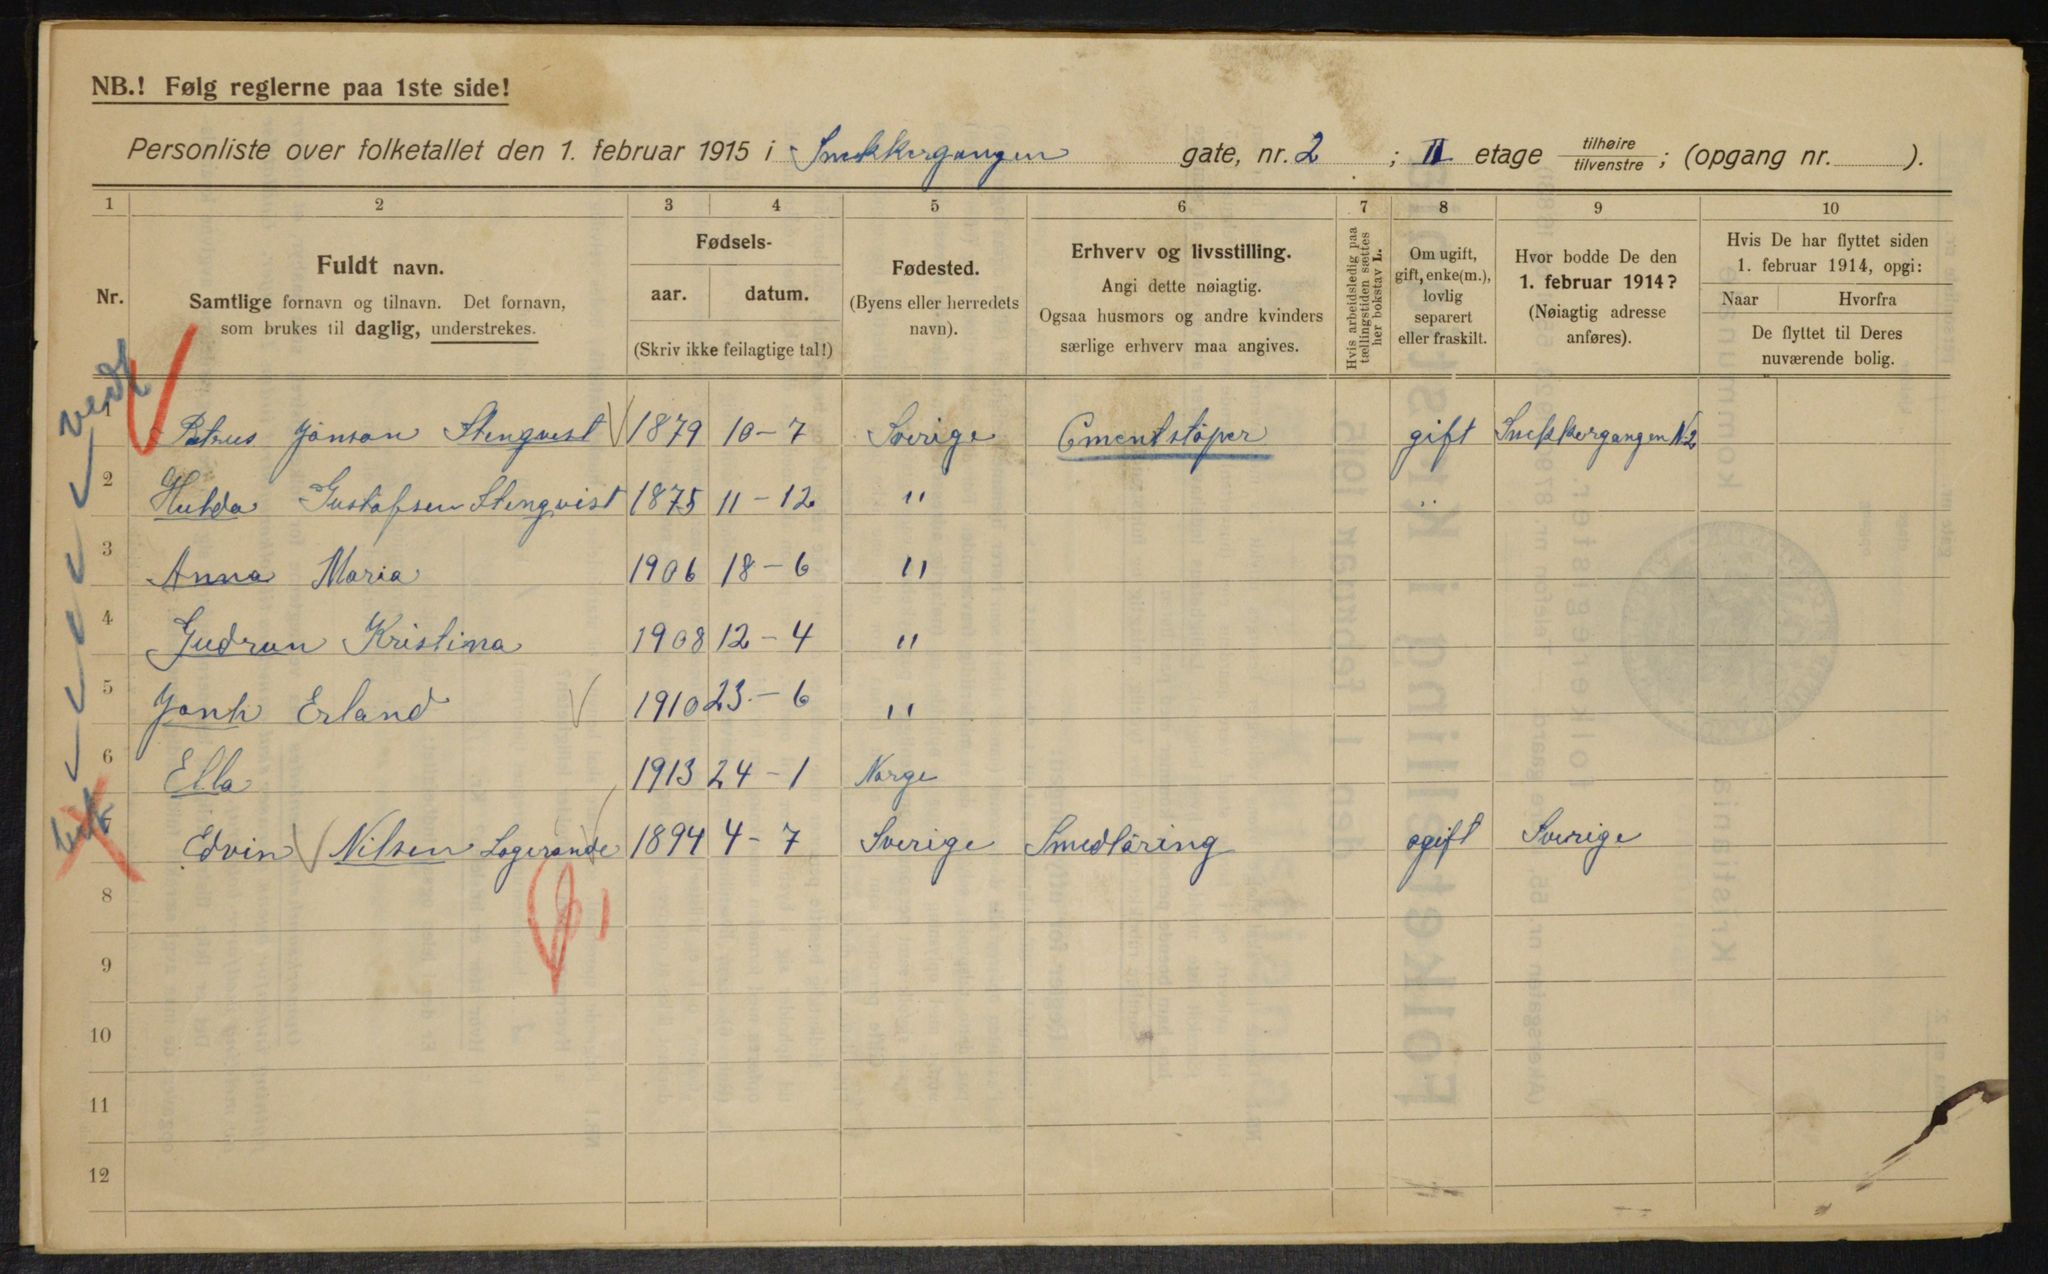 NB.! Følg reglerne paa 1ste side!
Personliste over folketallet den 1. februar 1915 i Snekkergangen gate, nr. 2 ; II etage tilhøire tilvenstre ; (opgang nr. ).
1 2 3 4 5 6 7 8 9 10
Nr.
Fuldt navn.
Samtlige fornavn og tilnavn. Det fornavn,
som brukes til daglig, understrekes.
Fødsels-
aar. datum.
(Skriv ikke feilagtige tal!)
Fødested.
(Byens eller herredets
navn).
Erhverv og livsstilling.
Angi dette nøiagtig.
Ogsaa husmors og andre kvinders
særlige erhverv maa angives.
Hvis arbeidsledig paa
tællingstiden sættes
her bokstav L.
Om ugift,
gift, enke(m.),
lovlig
separert
eller fraskilt.
Hvor bodde De den
1. februar 1914?
(Nøiagtig adresse
anføres).
Hvis De har flyttet siden
1. februar 1914, opgi:
Naar Hvorfra
De flyttet til Deres
nuværende bolig.
1 Petrus Jonson Stenqvist 1879 10-7 Sverige Cmentstöper gift Snekkergangen N 2
2 Hulda Gustafsen Stenqvist 1875 11-12 " "
3 Anna Maria 1906 18-6 "
4 Gudrun Kristina 1908 12-4 "
5 Jonh Erland 1910 23-6 "
6 Ella 1913 24-1 Norge
7 Edvin Nilsen Logerande 1894 4-7 Sverige Smedläring ogift Sverige
8
9
10
11
12